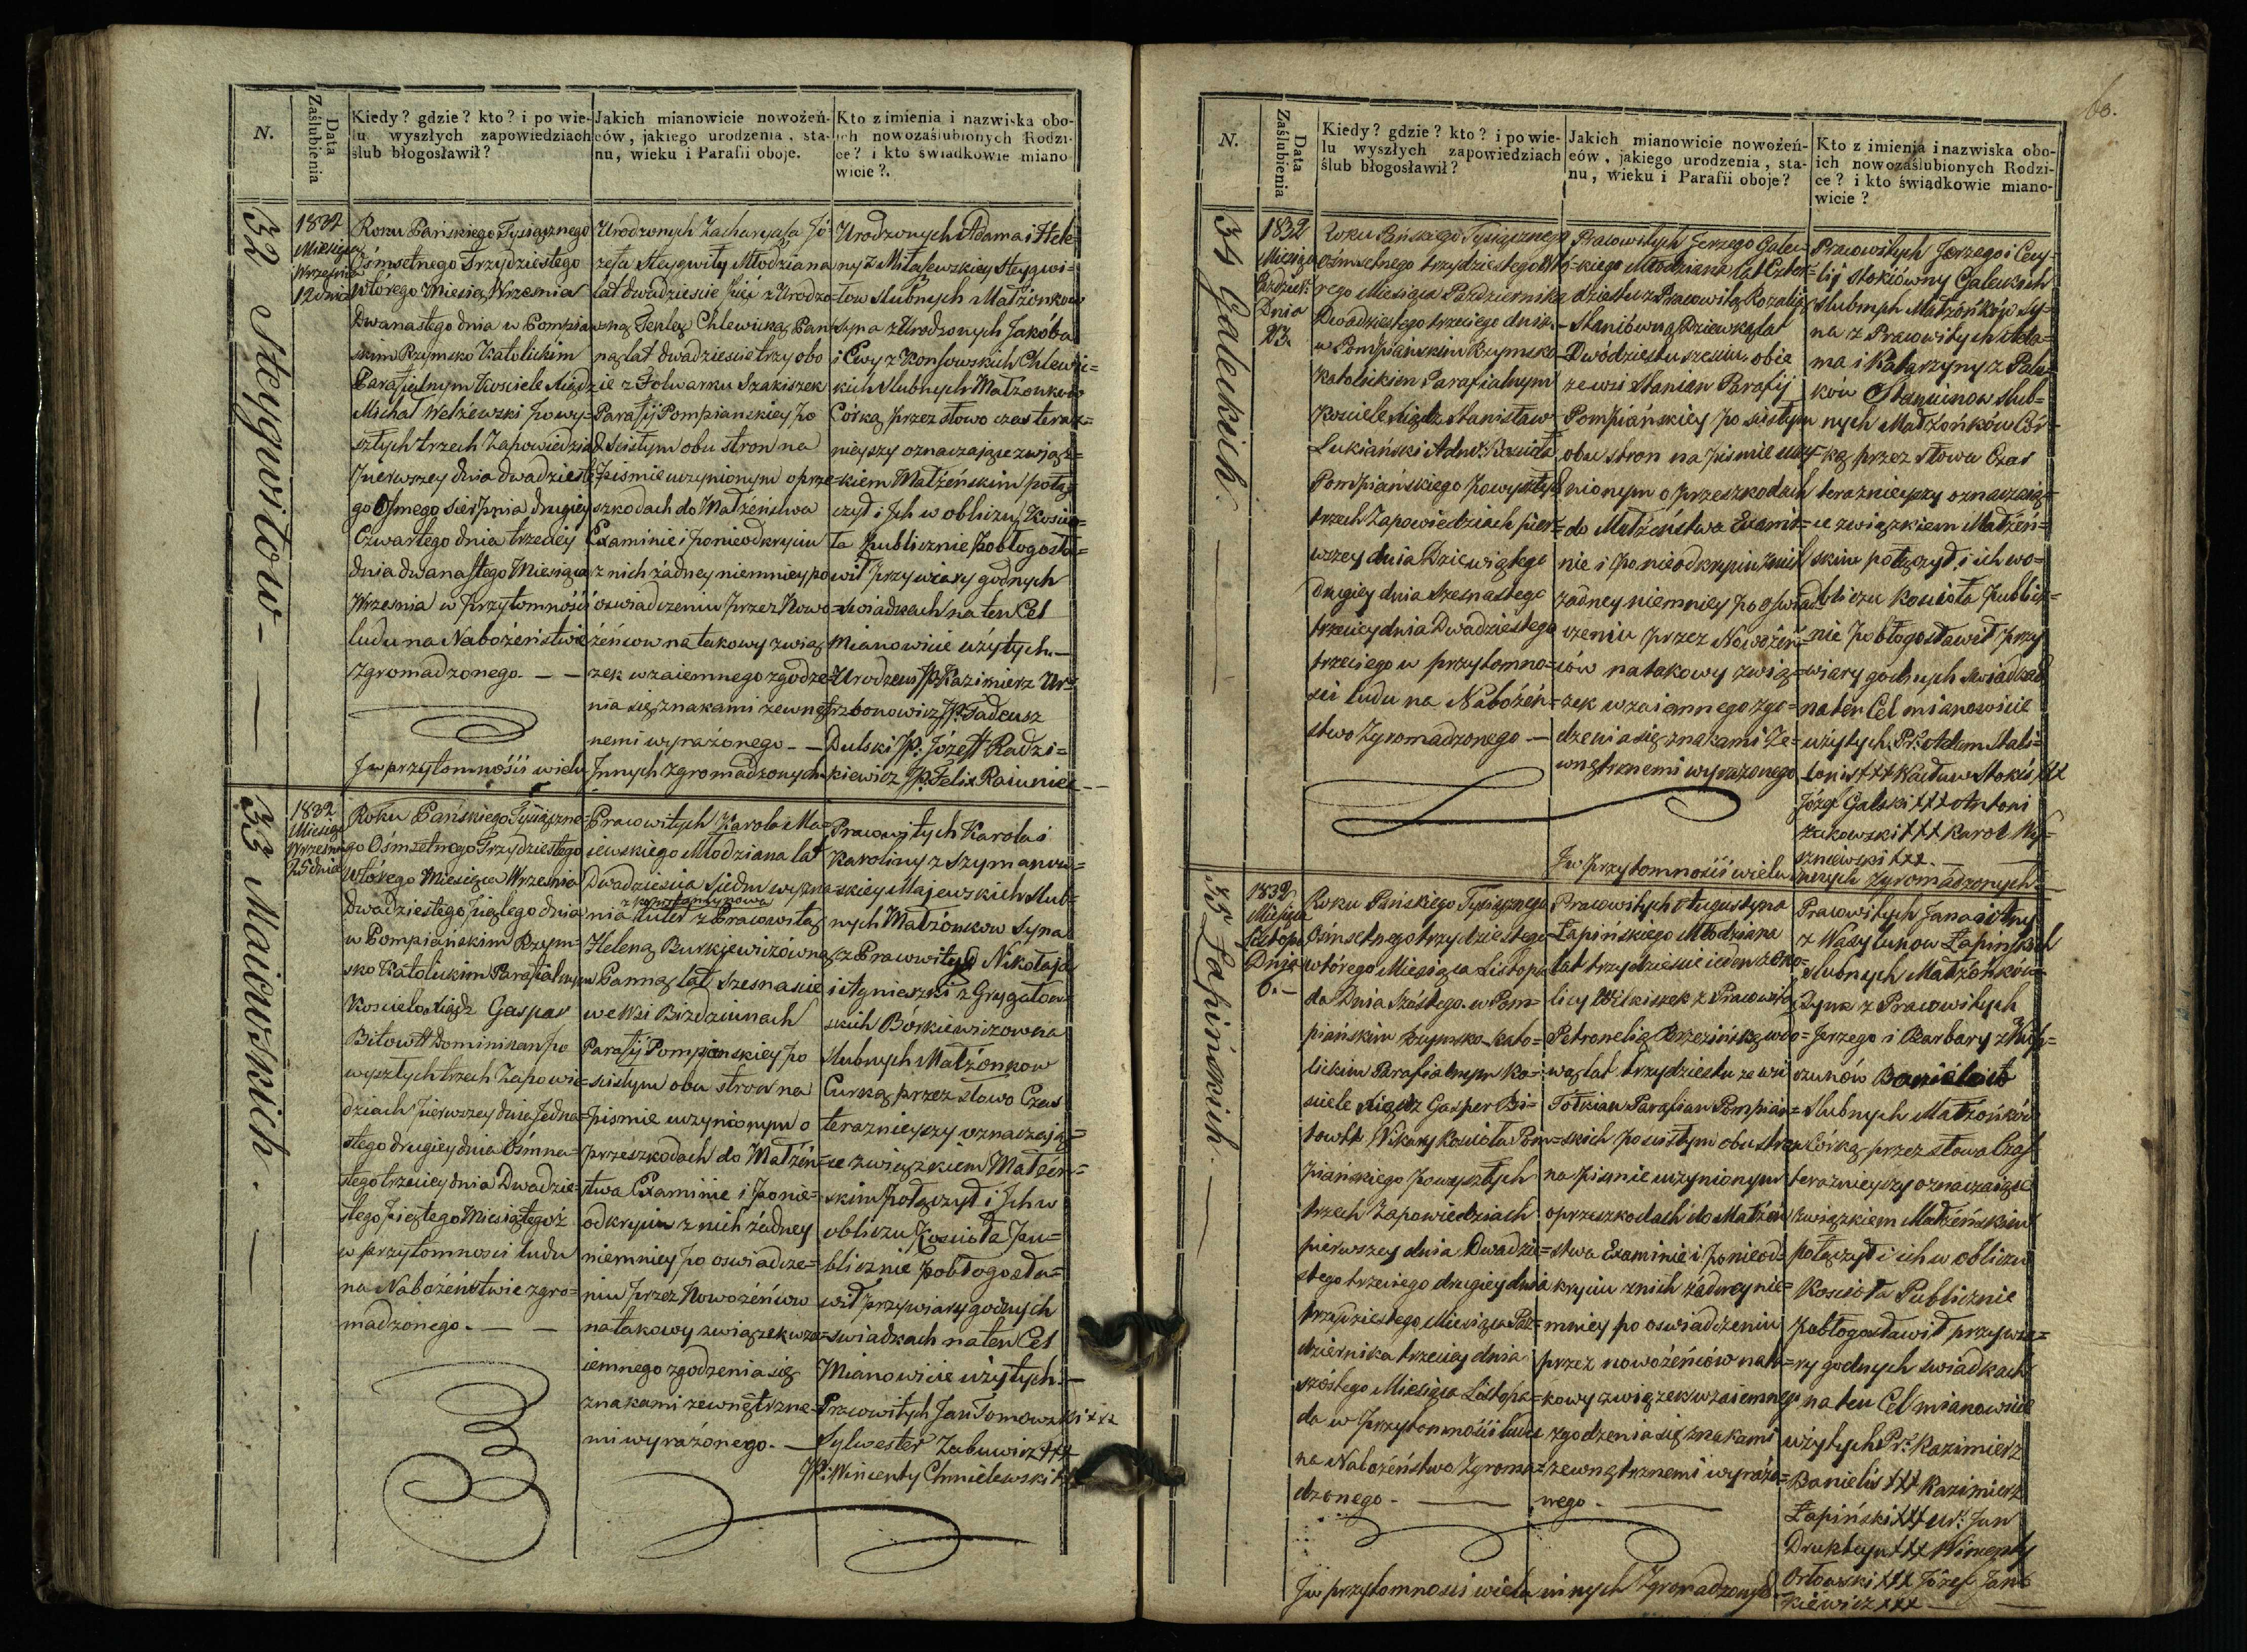 N.
Data
Zaślubienia
Kiedy? gdzie? kto? i po wie-
lu wyszłych zapowiedziach
ślub błogosławił?
Jakich mianowicie nowożeń-
ców, jakiego urodzenia, sta-
nu, wieku i Parafii oboje.
Kto z imienia i nazwiska obo-
ich nowozaślubionych Rodzi-
ce? i kto świadkowie miano
wicie?.
32 Steygwitow.
1832
Miesiąca
Września
12 dnia
Roku Pańskiego Tysiącznego
Ośmsetnego Trzydziestego
wtórego Miesiąca Września
Dwanastego dnia w Pompian
skim Rzymsko Katolickim
Parafialnym Kosciele Xiądz
Michał po wy-
szłych trzech Zapowiedziach
Pierwszey dnia dwudzieste
go Osmego Sierpnia drugiey
Czwartego dnia trzeciey
dnia dwanastego Miesiąca
Września w przytomności
ludu na Nabożeństwie
Zgromadzonego. — —
Urodzonych Zacharyasza Jó
zefa Steygwiłły Młodziana
lat dwadzieście pięć z Urodzo
wną Teklą Chlewicką Pan
ną lat dwadzieście trzy obo
ie z Folwarku Szakiszek
Parafij Pompianskiey po
scisłym obu stron na
piśmie uczynionym o prze
szkodach do Małżeństwa
Examinie i po nieodkryciu
z nich żadney niemniey po
oswiadczeniu przez Nowo
żeńcow na takowy związ
zek wzaiemnego zgodze
nia się znakami zewnętrz
nemi wyrażonego. — —
Urodzonych Adama i Hele
ny z Milaszewskiey Steygwi=
łow Slubnych Małżonkow
Syna z Urodzonych Jakóba
i Ewy z Konfowskich Chlewic=
kich Slubnych Małżonkow
Córką przez słowo czas teraz=
nieyszy oznaczaiące związ=
kiem Małżeńskim połą
czył i Jch w obliczu Koscio=
ła publicznie pobłogosła=
wił przy wiary godnych
swiadkach na ten Cel
Mianowicie użytych. —
Urodzeni JP. Kazimierz Ur=
bonowicz JP. Tadeusz
Dulski JP. Józeff Radzi=
kiewicz JP. Felix Raiuniec
Jw przytomności wielu Innych Zgromadzonych
33 Maiewskich.
1832
Miesiąca
Września
25 dnia
Roku Pańskiego Tysiączne-
go Ośmsetnego Trzydziestego
wtórego Miesiąca Września
Dwadziestego piątego dnia
w Pompiańskim Rzym-
sko Katolickim Parafialnym
Kosciele Xiądz Gaspar
Bitowtt Dominikan po
wyszłych trzech Zapowie-
dziach pierwszey dnia Jedna-
stego drugiey dnia Ośmna-
stego trzeciey dnia Dwadzie-
stego piątego Miesiąca tegoż
w przytomnosci ludu
na Nabożeństwie zgro=
madzonego. — —
Pracowitych Karola Ma=
iewskiego Młodziana lat
Dwadzieścia Siedm wyzna
z konstantynowa
nia Luter z Pracowitą
Heleną Burkiewiczówną
Panną lat szesnaście
we Wsi Birdziunach
Parafij Pompianskiey po
scisłym obu stron na
pismie uczynionym o
przeszkodach do Małżeń=
stwa Examinie i po nie=
odkryciu z nich żadney
niemniey po oswiadcze=
niu przez Nowożeńcow
na takowy związek wza=
iemnego zgodzenia się
znakami zewnętrzne=
mi wyrażonego. —
Pracowitych Karola i
Karoliny z Szymanow=
skiey Majewskich Slub=
nych Małżonkow Syna
z Pracowitych Nikołaja
i Agnieszki z Grygałow
skich Bórkiewiczowna
Slubnych Małżonkow
Curką przez słowo Czas
teraznieyszy oznaczają=
ce związkiem Małżeń=
skim połączył i Jch w
obliczu Kosciola Pu=
blicznie pobłogosła=
wił przy wiary godnych
swiadkach na ten Cel
Mianowicie użytych. —
Pracowitych Jan Tomowski +++
Sylwester Zabuwicz +++
JP: Wincenty Chmielewski +++
63.
N.
Data
Zaślubienia
Kiedy? gdzie? kto? i po wie-
lu wyszłych zapowiedziach
ślub błogosławił?
Jakich mianowicie nowożeń-
ców, jakiego urodzenia, sta-
nu, wieku i Parafii oboje?
Kto z imienia i nazwiska obo-
ich nowozaślubionych Rodzi-
ce? i kto świadkowie miano-
wicie?
34 Galeckich.
1832
Miesiąca
Paździer:
Dnia
23.
Roku Pańskiego Tysiącznego
ośmsetnego trzydziestego wtó-
rego Miesiąca Pazdziernika
Dwadziestego trzeciego dnia.
w Pompiańskim Rzymsko
Katolickim Parafialnym
Kosciele Xiądz Stanisław
Lukiański Adm: Kościoła
Pompiańskiego po wyszłych
trzech Zapowiedziach pier=
wszey dnia Dziewiątego
drugiey dnia szesnastego
trzeciey dnia Dwadziestego
trzeciego w przytomno=
sci ludu na Nabożeń=
stwo Zgromadzonego —
Pracowitych Jerzego Galec=
kiego Młodziana lat Czter=
dziestu z Pracowitą Rozalią
Staniówną Dziewką lat
Dwódziestu szesciu. obie
ze wsi Stanian Parafij
Pompiańskiey po scisłym
obu stron na pismie uczy=
nionym o przeszkodach
do Małżeństwa Exami=
nie i po nieodkryciu z nich
żadney niemniey po oswiad=
czeniu przez Nowożeń=
ców na takowy zwią=
zek wzaiemnego zgo=
dzenia się znakami Ze=
wnętrznemi wyrażonego
Pracowitych Jerzego i Cecy=
lij Stokiówny Galeckich
Slubnych Małżonków Sy=
na z Pracowitych Ada=
ma i Katarzyny z Palu=
ków Staniunow slub=
nych Małżonków Cór=
ką przez słowa Czas
teraznieyszy oznaczaią=
ce związkiem Małżeń=
skim połączył, i ich w o=
bliczu Kosciola Public=
nie pobłogosławił przy
wiary godnych swiadkach
na ten Cel mianowicie
użytych. Pr: Adam Stali=
lonis +++ Stokis +++
Józef Galski +++ Antoni
Zukowski +++ Karol Wy=
szniewski +++. — —
Jw przytomności wielu innych Zgromadzonych.
35 Łapińskich.
1832
Miesiąca
Listopa:
Dnia
6. —
Roku Pańskiego Tysiącznego
Ośmsetnego trzydziestego
wtórego Miesiąca Listopa
da Dnia Szóstego. w Pom=
piańskim Rzymsko-Kato=
lickim Parafialnym Ko=
sciele Xiądz Gasper Bi=
towtt Wikary Kosciola Pom=
piańskiego po wyszłych
trzech Zapowiedziach
pierwszey dnia Dwadzie=
stego trzeciego drugiey dnia
trzydziestego Miesiąca Paź=
dziernika trzeciey dnia
szóstego Miesiąca Listopa=
da w przytomności ludu
na Nabożeństwo Zgroma=
dzonego. —
Pracowitych Augustyna
Łapińskiego Młodziana
lat trzydzieście ieden z oko=
licy Wilkiszek z Pracowitą
Petronelią Brzezińską wdo=
wą lat trzydziestu ze wsi
Tołkian Parafian Pompiań=
skich po scisłym obu stron
na pismie uczynionym
o przeszkodach do Małżeń
stwa Examinie i po nieod=
kryciu z nich żadney nie=
mniey po oswiadczeniu
przez nowożeńców na ta=
kowy związek wzaiemnego
zgodzenia się znakami
zewnętrznemi wyrażo=
nego. —
Pracowitych Jana i Anny
z Wasylunow Łapińskich
slubnych Małżonków
Syna z Pracowitych
Jerzego i Barbary
Slubnych Małżonków
Córką przez słowa Czas
teraznieyszy oznaczaiące
związkiem Małżeńskim
połączył i ich w obliczu
Kosciola Publicznie
pobłogosławił przy wia=
ry godnych swiadkach
na ten Cel mianowicie
użytych Pr: Kazimierz
Banielis +++ Kazimierz
Łapiński +++ Ur: Jan
Drukteyn +++ Wincenty
Orłowski +++ Józef Jan
kiewicz +++ —
Jw przytomnosci wielu innych Zgromadzonych.